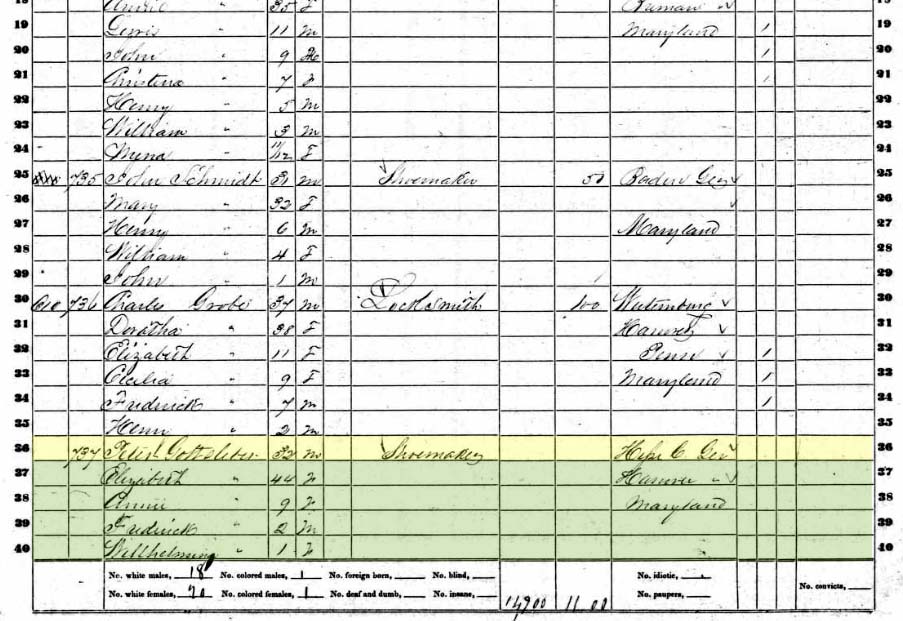 35 F
19 Lewis " 11 m Maryland 1 19
20 John " 9 1 20
21 Christena " 7 F 1 21
22 Henry " 5 m 22
23 William " 3 m 23
24 Mena " 11/12 F 24
25 735 John Schmidt 31 m Shoemaker 50 Baden Ger 25
26 Mary " 32 F 26
27 Henry " 6 m Maryland 27
28 William " 4 F 28
29 John " 1 m 29
30 736 Charles Grobe 37 m Locksmith 100 30
31 Dorotha " 38 F Hanover 31
32 Elizabeth " 11 F Penn 1 32
33 Cecilia " 9 F Maryland 1 33
34 Fredrick " 7 m 1 34
35 " 2 m 35
36 737 Peter 32 m Shoemaker Ger 36
37 Elizabeth " 44 F Hanover " 37
38 Annie " 9 F Maryland 38
39 Fredrick " 2 m 39
40 " 1 F 40
No. white males, 18 No. colored males, 1 No. foreign born, No. blind, No. idiotic,
No. white females, 20 No. colored females, 1 No. deaf and dumb, No. insane, No. paupers, No. convicts,
14900 1100